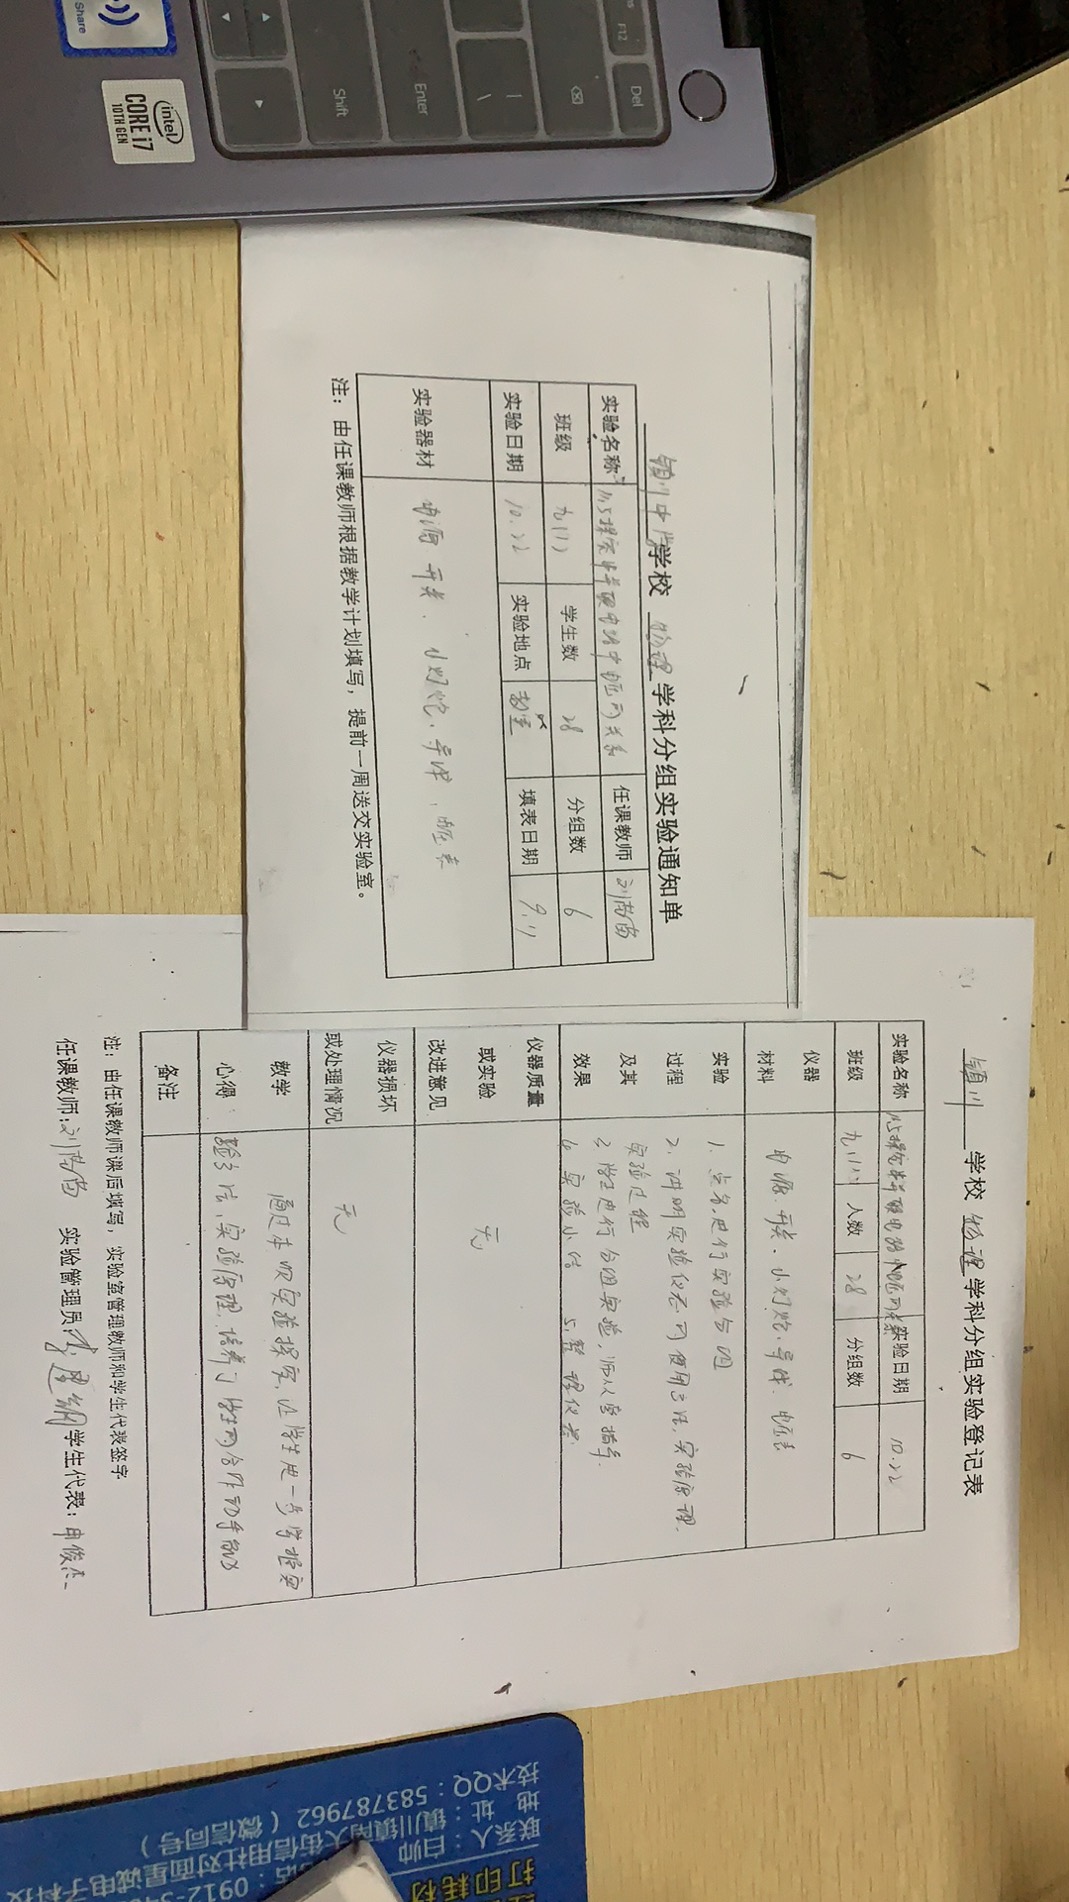 Share
intel
CORE i7
10TH GEN
F12
Del
Enter
Shift
镇川中学校 物理 学科分组实验通知单
实验名称 11.5探究串并联电路中电压的关系 任课教师
班级 九(1) 学生数 28 分组数 6
实验日期 10.22 实验地点 教室 填表日期 9.
实验器材 电源 开关、小灯炮、导线、电压表
注：由任课教师根据教学计划填写，提前一周送交实验室。
镇川 学校 物理 学科分组实验登记表
实验名称 11.5探究串并联电路中电压的关系 实验日期 10.22
班级 九(1) 人数 28 分组数 6
仪器材料 电源、开关、小灯炮、导线、电压表
实验过程及其效果
1、点名,进行实验分组
2、讲明实验仪器的使用方法、实验原理、
实验过程
3、学生进行分组实验,师从旁指导.
4、实验小结 5、整理仪器.
仪器质量或实验改进意见 无
仪器损坏或处理情况 无
教学心得：
通过本次实验探究,让学生进一步掌握实
验方法、实验原理、培养了学生的合作动手能力
备注
注：由任课教师课后填写，实验室管理教师和学生代表签字
任课教师: 实验管理员: 学生代表：申俊
打印耗材
联系人：白帅
地 址：镇川镇南大街信用社对面星诚电子科技
技术QQ：583787962（微信同号）